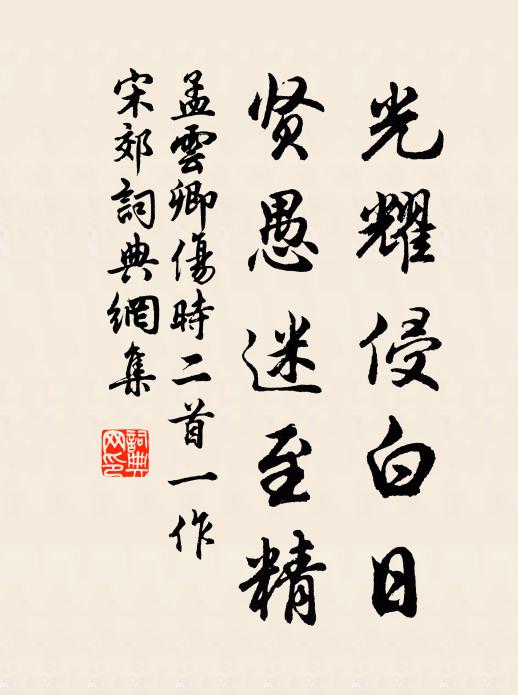 光耀侵白日
贤愚迷至精
孟雲卿傷時二首一作
宋郊詞典網集
詞典网印